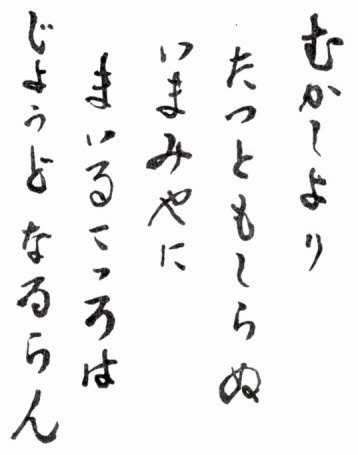 むかしより
たつともしらぬ
いまみやに
まいるこころは
じようどなるらん